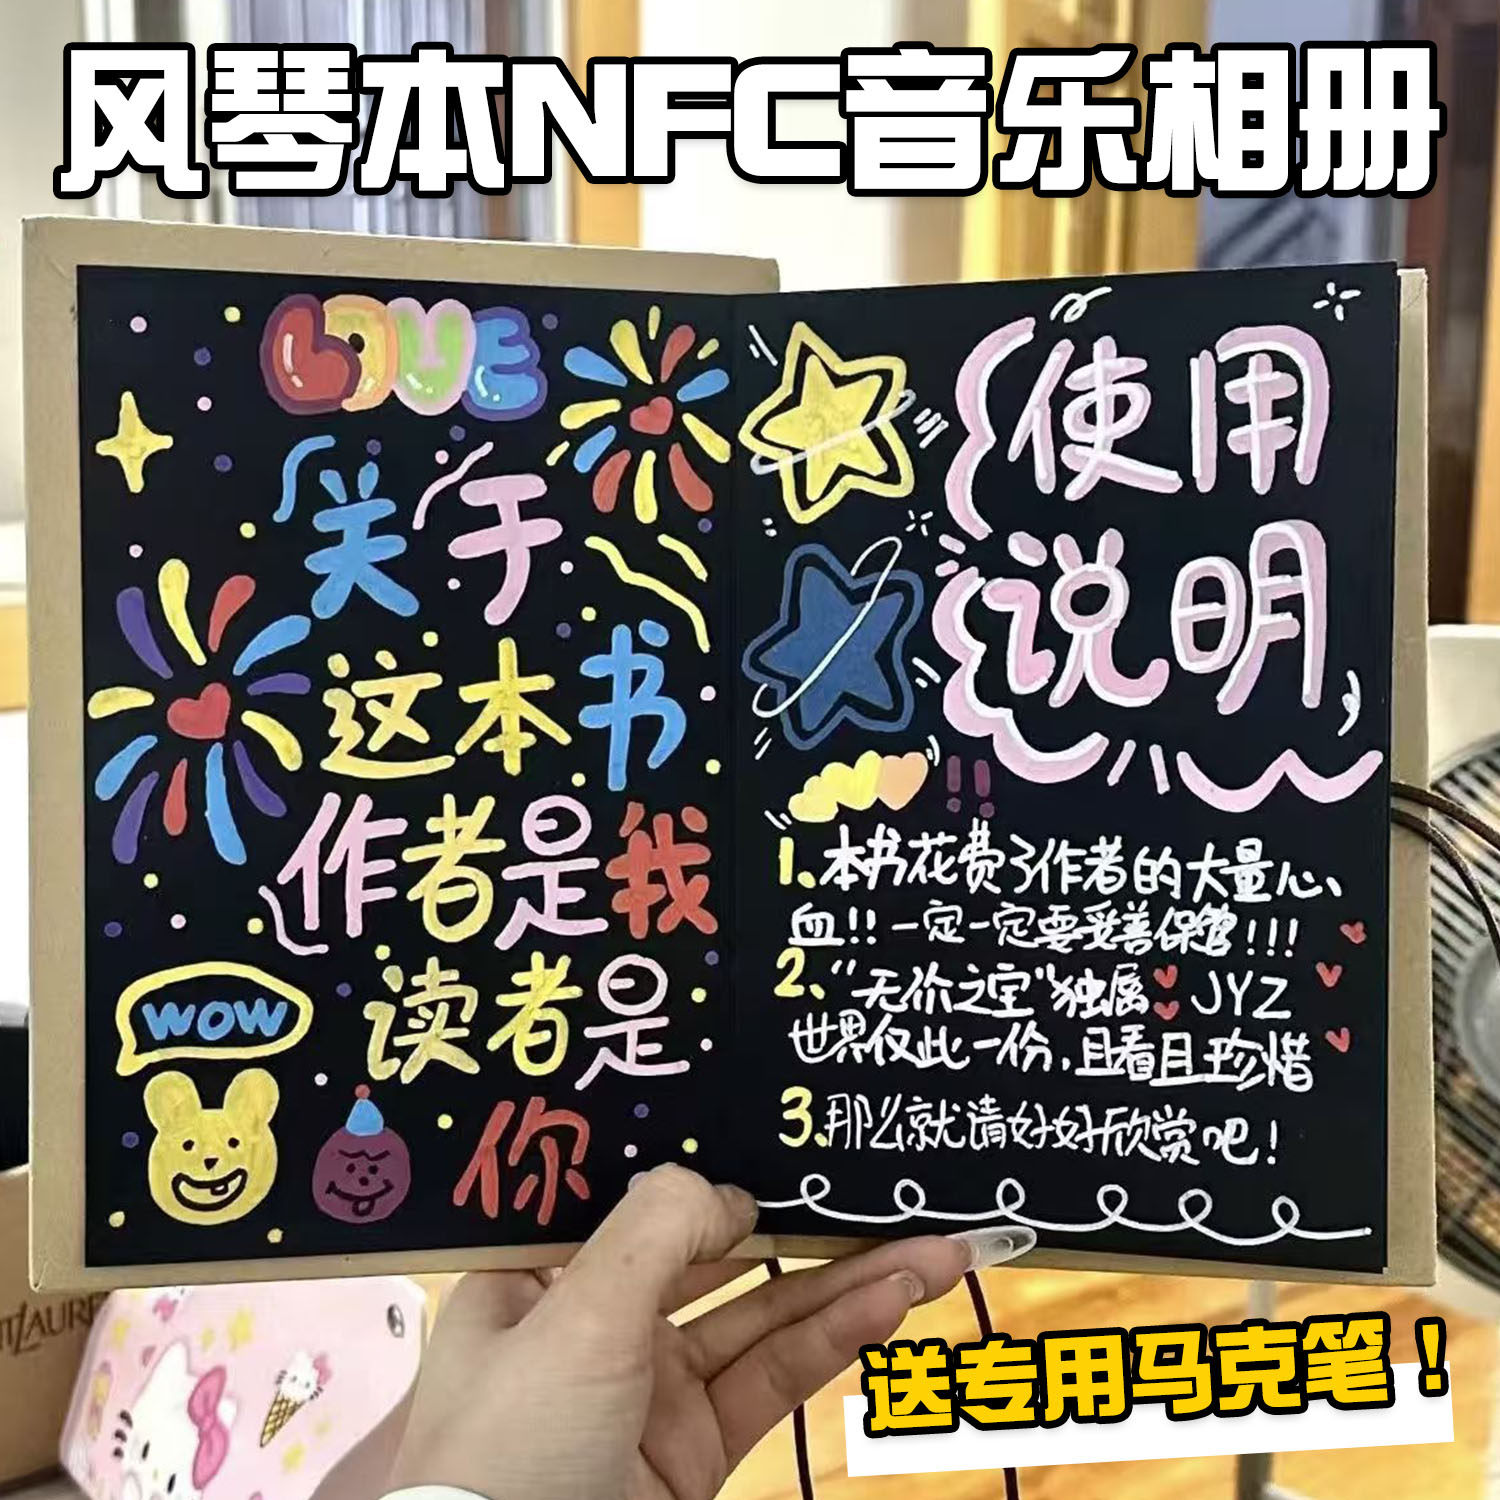 风琴本NFC音乐相册
LOVE
关于
这本书
作者是我
读者是
你
wow
使用
说明
1.本书花费了作者的大量心
血!!一定一定要妥善保管!!!
2、"无价之宝"独属JYZ
世界仅此一份,且看且珍惜
3.那么就请好好欣赏吧!
送专用马克笔!